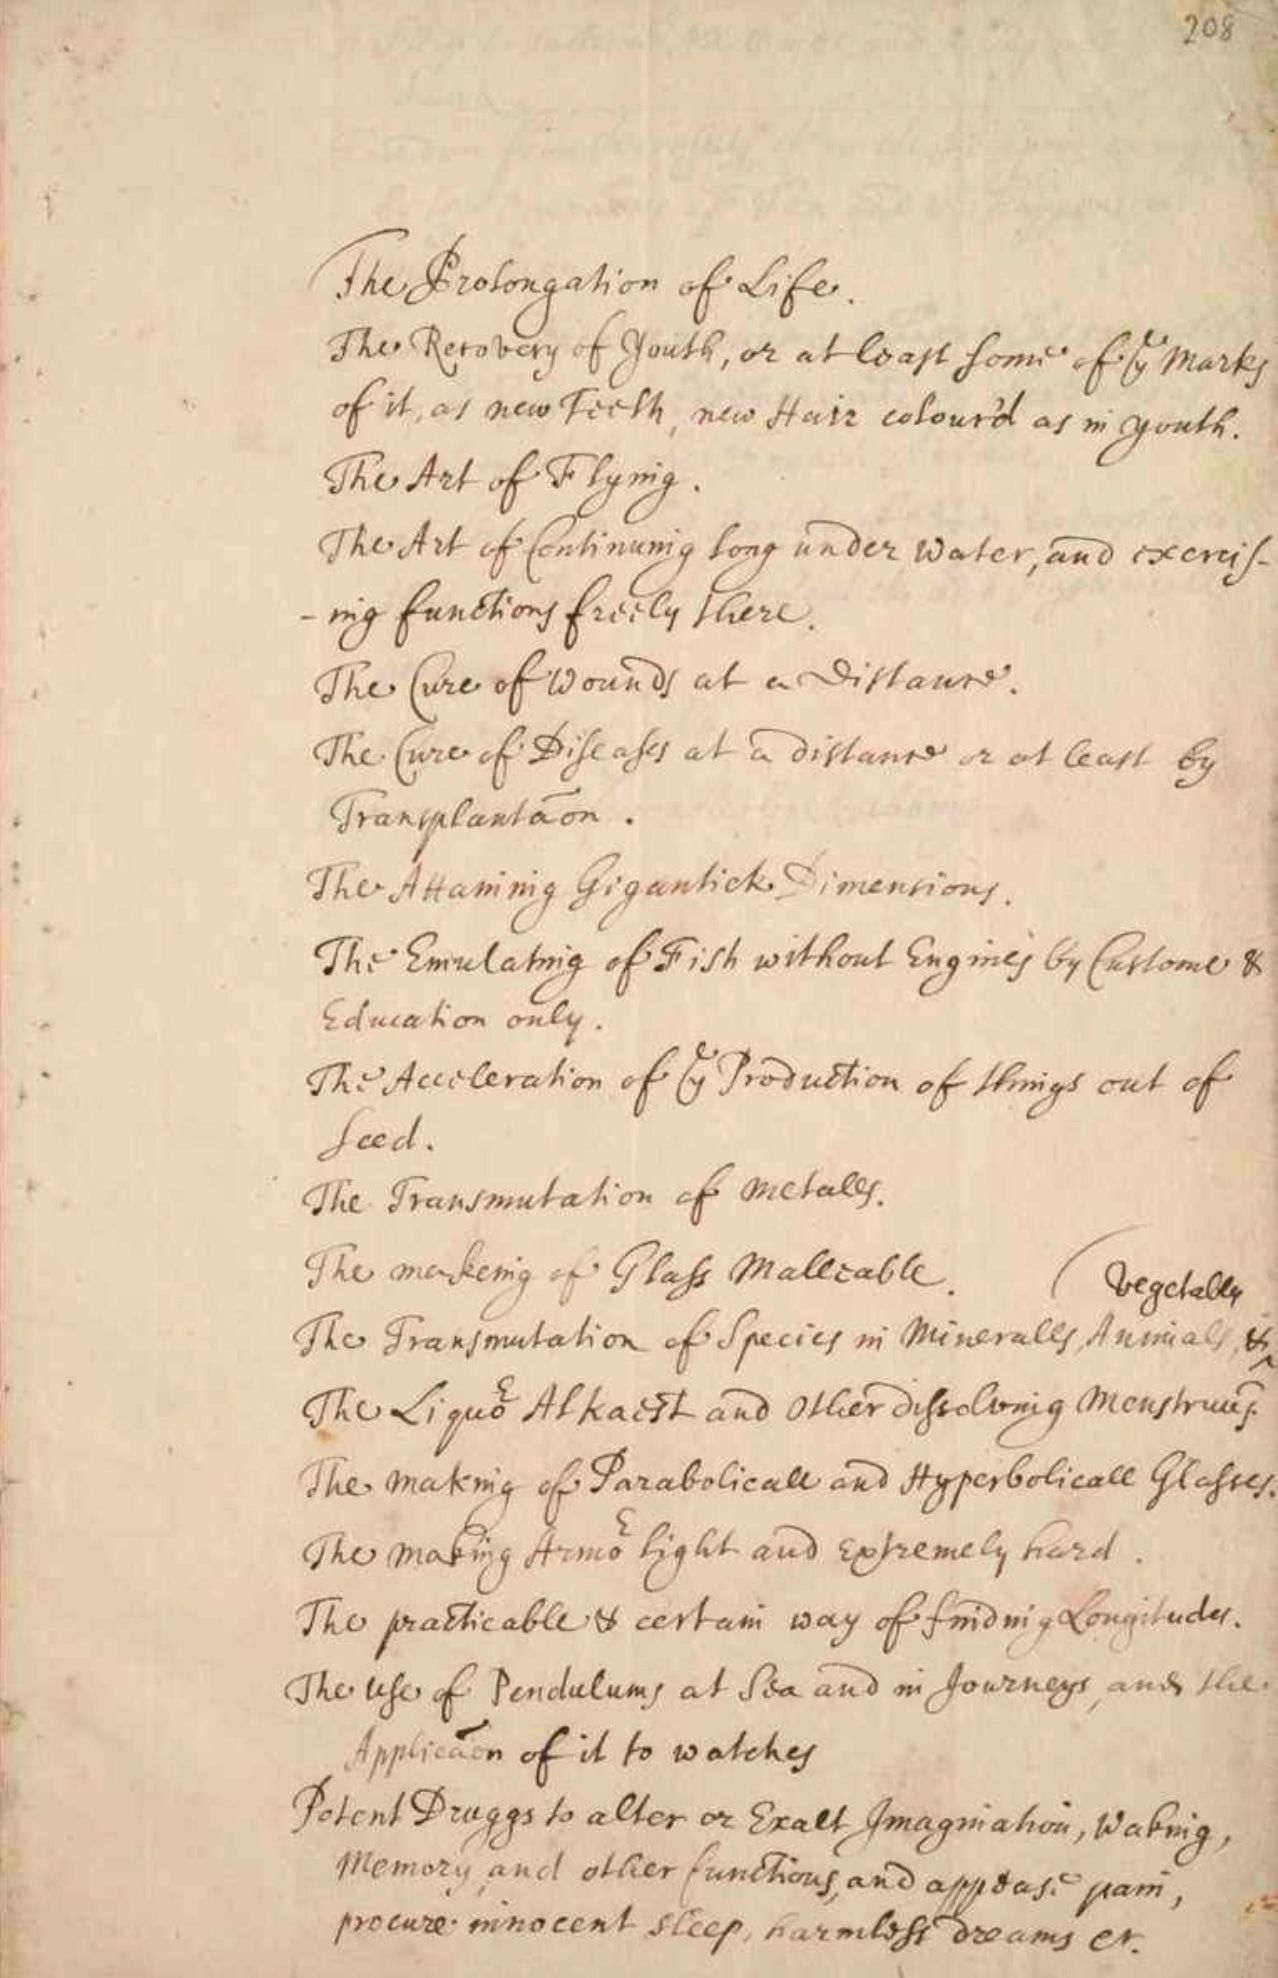 208
The Prolongation of Life.
The Recovery of Youth, or at least some of ye Marks
of it, as new Teeth, new Hair colour'd as in youth.
The Art of Flying.
The Art of Continuing long under water, and exercis-
-ing functions freely there.
The Cure of Wounds at a Distance.
The Cure of Diseases at a distance or at least by
Transplantaōn.
The Attaining Gigantick Dimensions.
The Emulating of Fish without Engines by Custome &
Education only.
The Acceleration of ye Production of things out of
seed.
The Transmutation of metalls.
The makeing of Glass Malleable.
Vegetables
The Transmutation of Species in Mineralls, Animals, &
The Liquor Alkaest and other dissolving Menstruums.
The making of Parabolicall and Hyperbolicall Glasses.
The making Armor light and extremely hard.
The practicable & certain way of finding Longitudes.
The use of Pendulums at Sea and in Journeys, and the
Applicaōn of it to watches
Potent Druggs to alter or Exalt Imagination, Waking,
Memory, and other functions, and appease pain,
procure innocent sleep, harmless dreams etc.